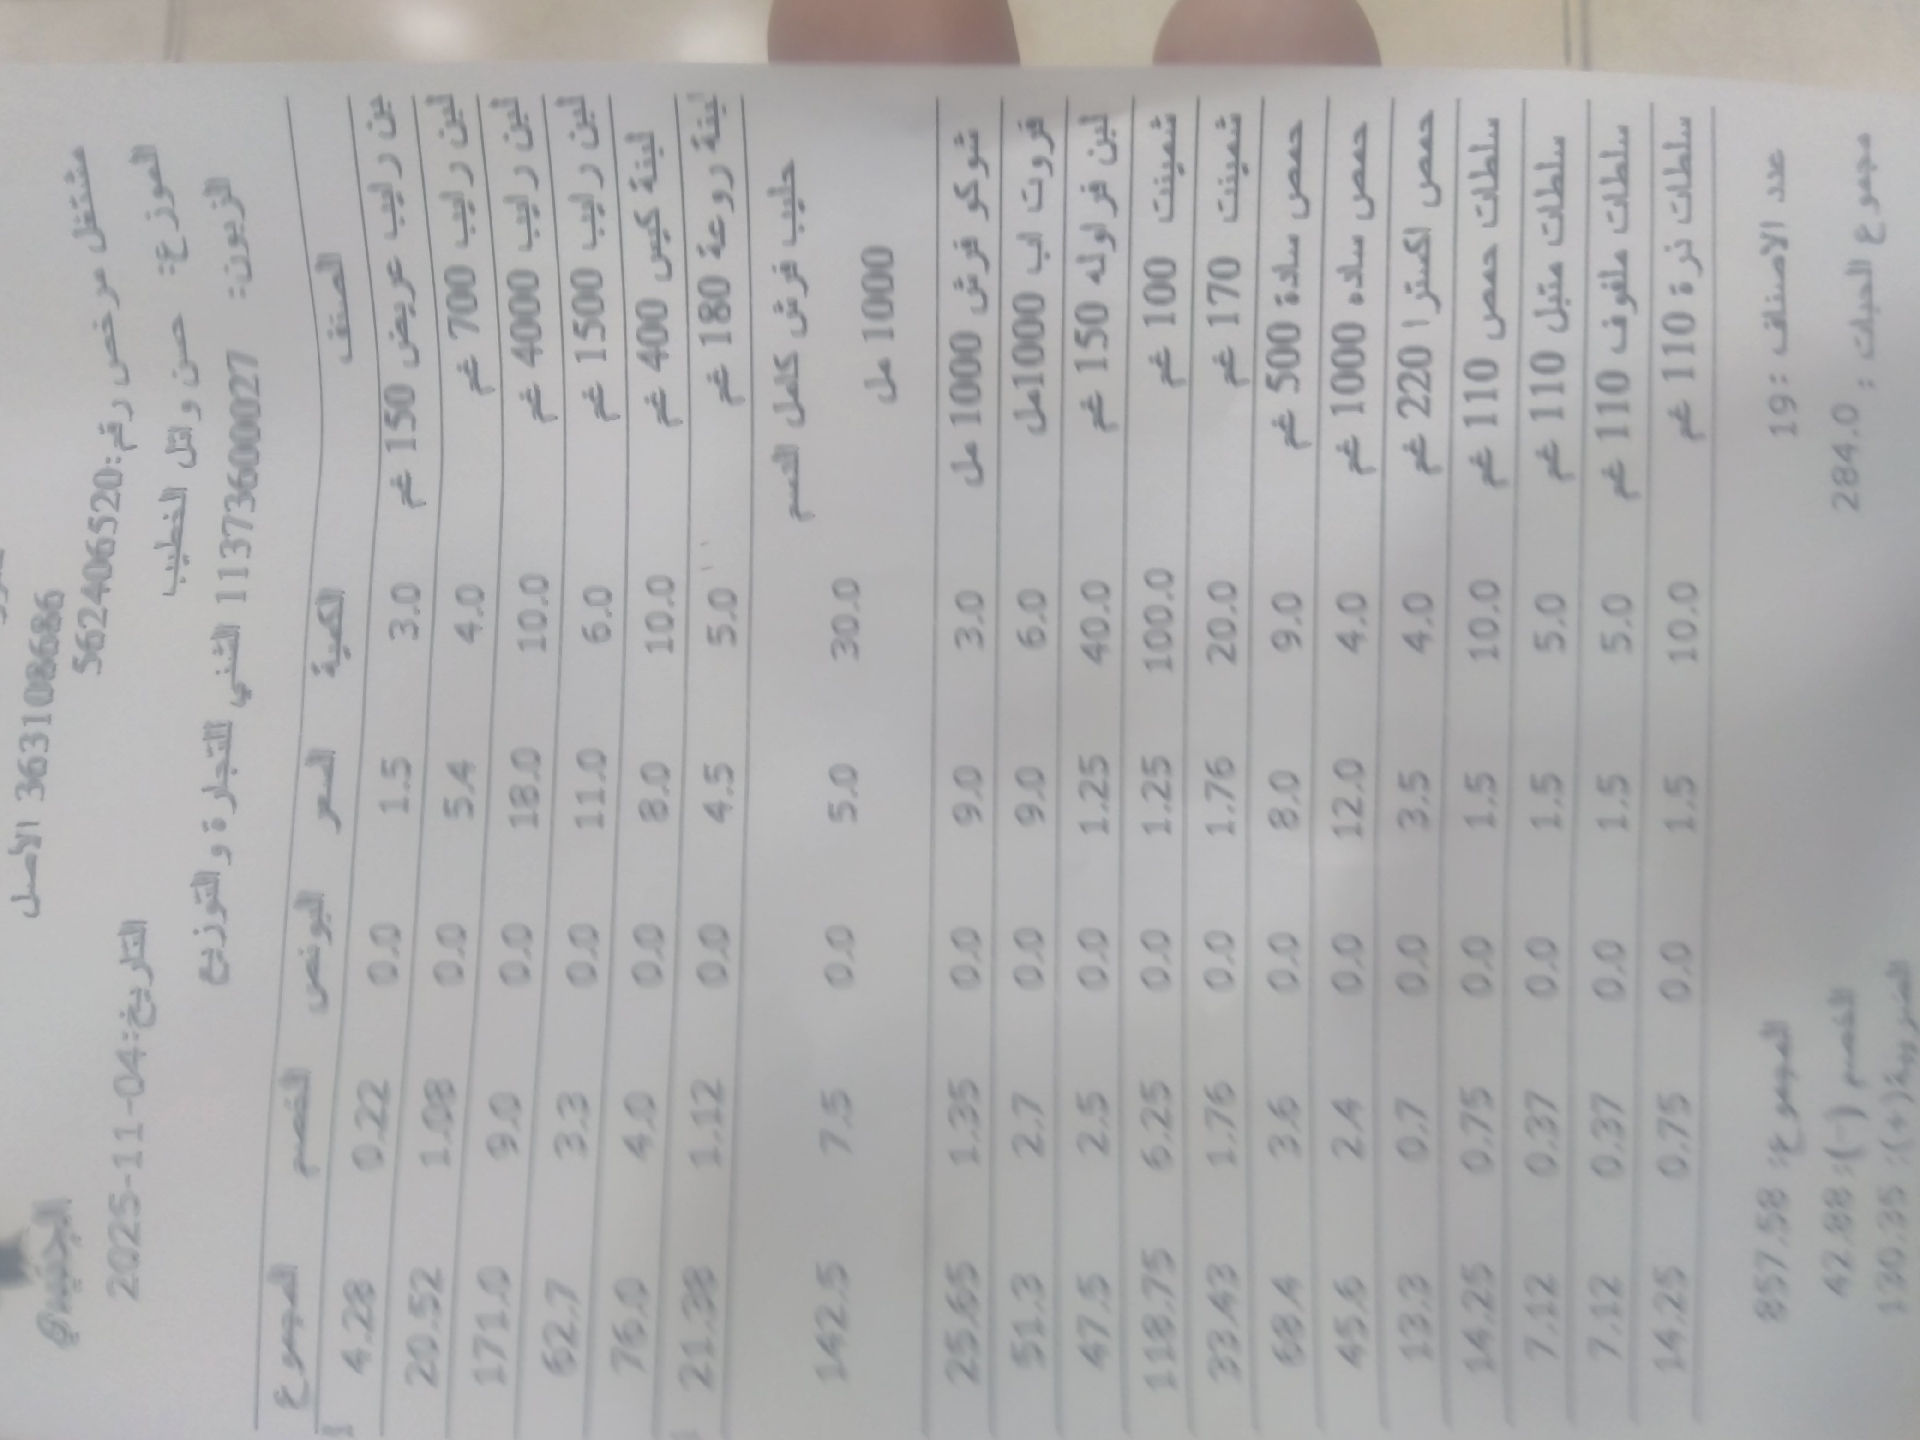 الجنيدي
363108686 الأصل
مشتغل مرخص رقم:562406520
الموزع: حسن وائل الخطيب التاريخ:2025-11-04
الزبون: 1137360000027 الشني للتجارة والتوزيع
الصنف الكمية السعر البونص الخصم المجموع
لبن رايب عريض 150 غم 3.0 1.5 0.0 0.22 4.28
لبن رايب 700 غم 4.0 5.4 0.0 1.08 20.52
لبن رايب 4000 غم 10.0 18.0 0.0 9.0 171.0
لبن رايب 1500 غم 6.0 11.0 0.0 3.3 62.7
لبنة كيس 400 غم 10.0 8.0 0.0 4.0 76.0
لبنة روعة 180 غم 5.0 4.5 0.0 1.12 21.38
حليب فرش كامل الدسم 1000 مل 30.0 5.0 0.0 7.5 142.5
شوكو فرش 1000 مل 3.0 9.0 0.0 1.35 25.65
فروت اب 1000مل 6.0 9.0 0.0 2.7 51.3
لبن فراوله 150 غم 40.0 1.25 0.0 2.5 47.5
شمينت 100 غم 100.0 1.25 0.0 6.25 118.75
شمينت 170 غم 20.0 1.76 0.0 1.76 33.43
حمص سادة 500 غم 9.0 8.0 0.0 3.6 68.4
حمص ساده 1000 غم 4.0 12.0 0.0 2.4 45.6
حمص اكسترا 220 غم 4.0 3.5 0.0 0.7 13.3
سلطات حمص 110 غم 10.0 1.5 0.0 0.75 14.25
سلطات متبل 110 غم 5.0 1.5 0.0 0.37 7.12
سلطات ملفوف 110 غم 5.0 1.5 0.0 0.37 7.12
سلطات ذرة 110 غم 10.0 1.5 0.0 0.75 14.25
عدد الاصناف :19 المجموع: 857.58
مجموع الحبات : 284.0 الخصم (-): 42.88
الضريبة(+): 130.35